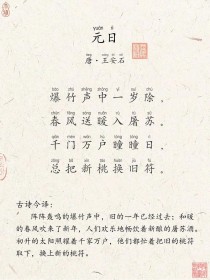 yuán rì
元日
唐·王安石
爆竹声中一岁除，
春风送暖入屠苏。
千门万户曈曈日，
总把新桃换旧符。
古诗今译：
阵阵轰鸣的爆竹声中，旧的一年已经过去；和暖
的春风吹来了新年，人们欢乐地畅饮着新酿的屠苏酒。
初升的太阳照耀着千家万户，他们都忙着把旧的桃符
取下，换上新的桃符。